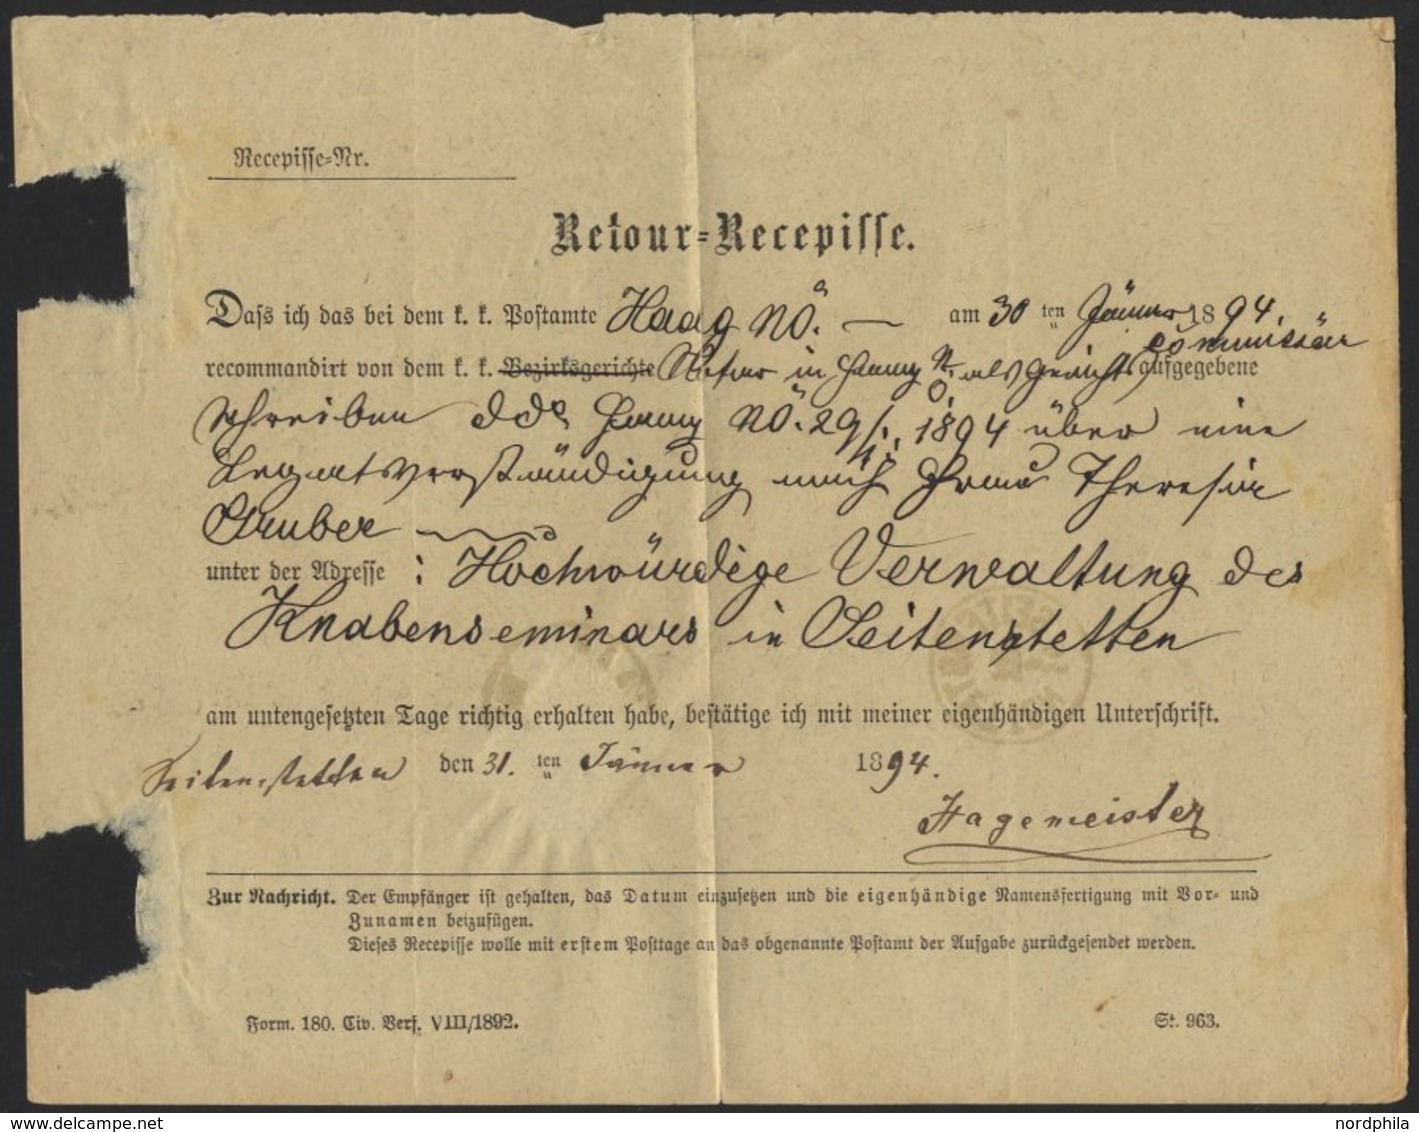 Recepisse-Nr.
Retour-Recepisse.
Dass ich das bei dem k. k. Postamte Haag NÖ. — am 30 ten Jänner 1894.
recommandirt von dem k. k. Bezirksgerichte Notar in Haag NÖ. als Gerichtscommissär aufgegebene
Schreiben ddo Haag NÖ. 29/1. 1894 über eine
Legatsverständigung nach Frau Theresia
Gruber
unter der Adresse : Hochwürdige Verwaltung des
Knabenseminars in Seitenstetten
am untengesetzten Tage richtig erhalten habe, bestätige ich mit meiner eigenhändigen Unterschrift.
Seitenstetten den 31. ten Jänner 1894.
Hagemeister
Zur Nachricht. Der Empfänger ist gehalten, das Datum einzusetzen und die eigenhändige Namensfertigung mit Vor- und
Zunamen beizufügen.
Dieses Recepisse wolle mit erstem Posttage an das obgenannte Postamt der Aufgabe zurückgesendet werden.
Form. 180. Civ. Verf. VIII/1892.
St. 963.
nordphila